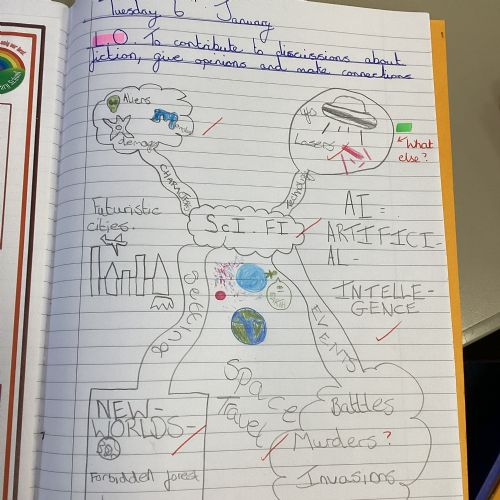 Tuesday 6th January
LO To contribute to discussions about
fiction, give opinions and make connections
Aliens
damage
Characters
UFO
Lasers
What
else?
Technology
Futuristic
cities.
SCI-FI
AI =
ARTIFICI-
AL-
INTELLE-
GENCE
Setting
EVENTS
Space
Travel
NEW-
WORLDS-
Forbidden forest
Battles
Murders?
Invasions